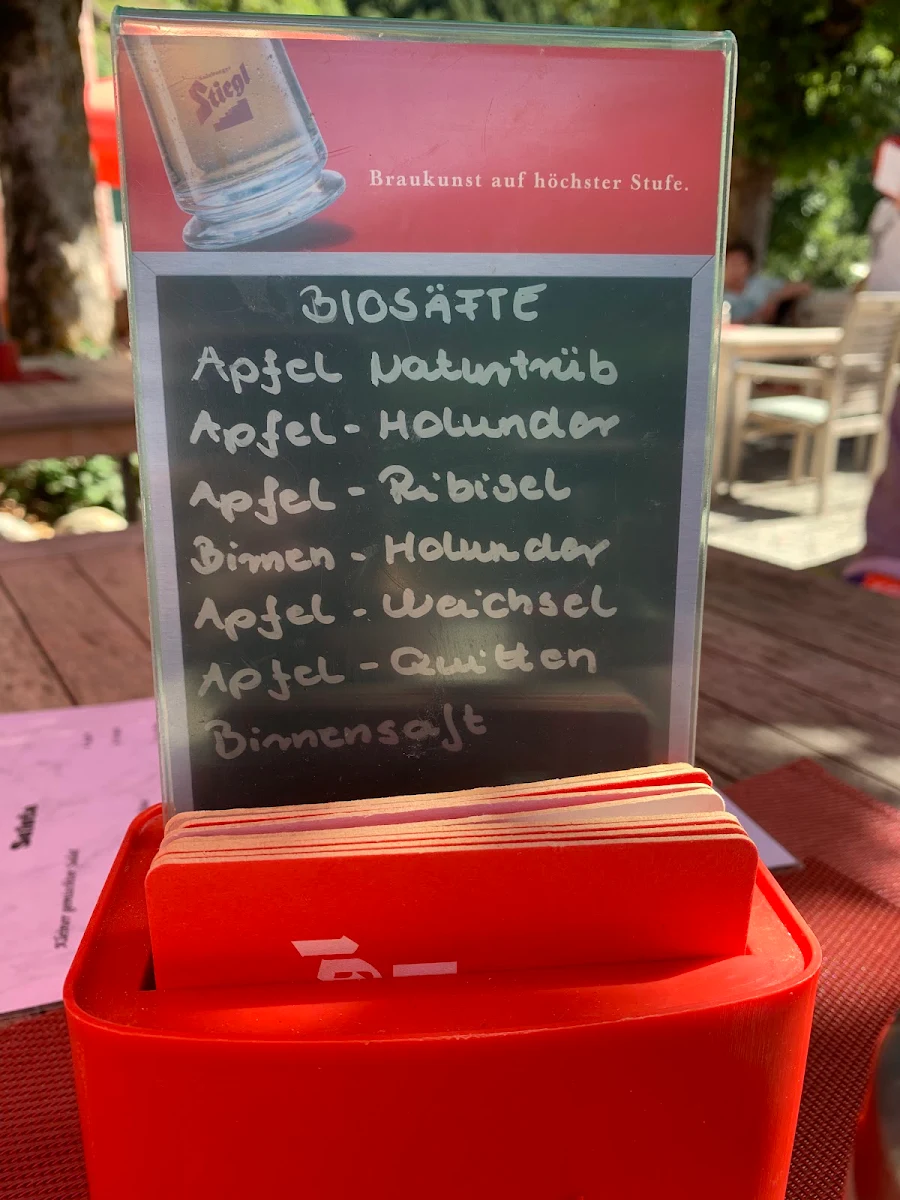 Stiegl
Braukunst auf höchster Stufe.
BIOSÄFTE
Apfel Naturtrüb
Apfel - Holunder
Apfel - Ribisel
Birnen - Holunder
Apfel - Weichsel
Apfel - Quitten
Birnensaft